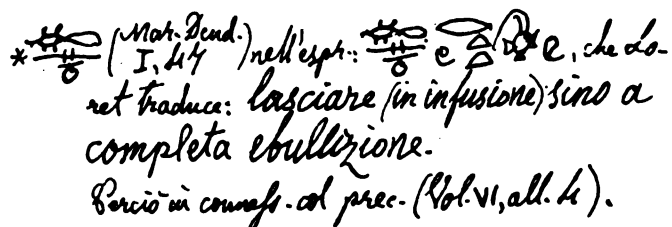 * (Mar. Dend. I, 47) nell'espr.: e e, che Lo-
ret traduce: lasciare (in infusione) sino a
completa ebullizione.
Perciò in conness. col prec. (Vol. VI, all. 4).